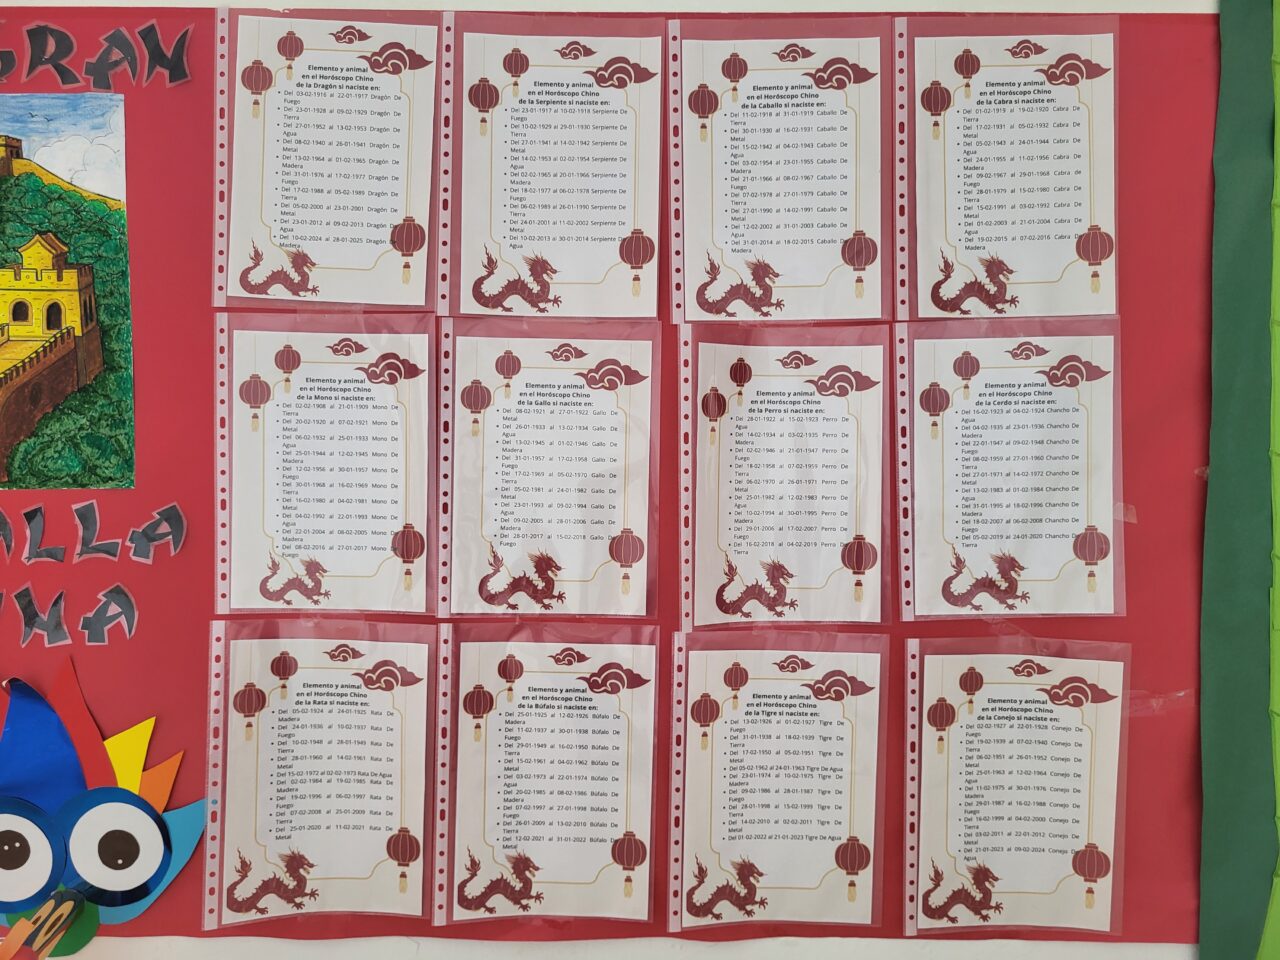 GRAN
ALLA
INA
Elemento y animal
en el Horóscopo Chino
de la Dragón si naciste en:
Del 03-02-1916 al 22-01-1917 Dragón De
Fuego
Del 23-01-1928 al 09-02-1929 Dragón De
Tierra
Del 27-01-1952 al 13-02-1953 Dragón De
Agua
Del 08-02-1940 al 26-01-1941 Dragón De
Metal
Del 13-02-1964 al 01-02-1965 Dragón De
Madera
Del 31-01-1976 al 17-02-1977 Dragón De
Fuego
Del 17-02-1988 al 05-02-1989 Dragón De
Tierra
Del 05-02-2000 al 23-01-2001 Dragón De
Metal
Del 23-01-2012 al 09-02-2013 Dragón De
Agua
Del 10-02-2024 al 28-01-2025 Dragón De
Madera
Elemento y animal
en el Horóscopo Chino
de la Serpiente si naciste en:
Del 23-01-1917 al 10-02-1918 Serpiente De
Fuego
Del 10-02-1929 al 29-01-1930 Serpiente De
Tierra
Del 27-01-1941 al 14-02-1942 Serpiente De
Metal
Del 14-02-1953 al 02-02-1954 Serpiente De
Agua
Del 02-02-1965 al 20-01-1966 Serpiente De
Madera
Del 18-02-1977 al 06-02-1978 Serpiente De
Fuego
Del 06-02-1989 al 26-01-1990 Serpiente De
Tierra
Del 24-01-2001 al 11-02-2002 Serpiente De
Metal
Del 10-02-2013 al 30-01-2014 Serpiente De
Agua
Elemento y animal
en el Horóscopo Chino
de la Caballo si naciste en:
Del 11-02-1918 al 31-01-1919 Caballo De
Tierra
Del 30-01-1930 al 16-02-1931 Caballo De
Metal
Del 15-02-1942 al 04-02-1943 Caballo De
Agua
Del 03-02-1954 al 23-01-1955 Caballo De
Madera
Del 21-01-1966 al 08-02-1967 Caballo De
Fuego
Del 07-02-1978 al 27-01-1979 Caballo De
Tierra
Del 27-01-1990 al 14-02-1991 Caballo De
Metal
Del 12-02-2002 al 31-01-2003 Caballo De
Agua
Del 31-01-2014 al 18-02-2015 Caballo De
Madera
Elemento y animal
en el Horóscopo Chino
de la Cabra si naciste en:
Del 01-02-1919 al 19-02-1920 Cabra De
Tierra
Del 17-02-1931 al 05-02-1932 Cabra De
Metal
Del 05-02-1943 al 24-01-1944 Cabra De
Agua
Del 24-01-1955 al 11-02-1956 Cabra De
Madera
Del 09-02-1967 al 29-01-1968 Cabra De
Fuego
Del 28-01-1979 al 15-02-1980 Cabra De
Tierra
Del 15-02-1991 al 03-02-1992 Cabra De
Metal
Del 01-02-2003 al 21-01-2004 Cabra De
Agua
Del 19-02-2015 al 07-02-2016 Cabra De
Madera
Elemento y animal
en el Horóscopo Chino
de la Mono si naciste en:
Del 02-02-1908 al 21-01-1909 Mono De
Tierra
Del 20-02-1920 al 07-02-1921 Mono De
Metal
Del 06-02-1932 al 25-01-1933 Mono De
Agua
Del 25-01-1944 al 12-02-1945 Mono De
Madera
Del 12-02-1956 al 30-01-1957 Mono De
Fuego
Del 30-01-1968 al 16-02-1969 Mono De
Tierra
Del 16-02-1980 al 04-02-1981 Mono De
Metal
Del 04-02-1992 al 22-01-1993 Mono De
Agua
Del 22-01-2004 al 08-02-2005 Mono De
Madera
Del 08-02-2016 al 27-01-2017 Mono De
Fuego
Elemento y animal
en el Horóscopo Chino
de la Gallo si naciste en:
Del 08-02-1921 al 27-01-1922 Gallo De
Metal
Del 26-01-1933 al 13-02-1934 Gallo De
Agua
Del 13-02-1945 al 01-02-1946 Gallo De
Madera
Del 31-01-1957 al 17-02-1958 Gallo De
Fuego
Del 17-02-1969 al 05-02-1970 Gallo De
Tierra
Del 05-02-1981 al 24-01-1982 Gallo De
Metal
Del 23-01-1993 al 09-02-1994 Gallo De
Agua
Del 09-02-2005 al 28-01-2006 Gallo De
Madera
Del 28-01-2017 al 15-02-2018 Gallo De
Fuego
Elemento y animal
en el Horóscopo Chino
de la Perro si naciste en:
Del 28-01-1922 al 15-02-1923 Perro De
Agua
Del 14-02-1934 al 03-02-1935 Perro De
Madera
Del 02-02-1946 al 21-01-1947 Perro De
Fuego
Del 18-02-1958 al 07-02-1959 Perro De
Tierra
Del 06-02-1970 al 26-01-1971 Perro De
Metal
Del 25-01-1982 al 12-02-1983 Perro De
Agua
Del 10-02-1994 al 30-01-1995 Perro De
Madera
Del 29-01-2006 al 17-02-2007 Perro De
Fuego
Del 16-02-2018 al 04-02-2019 Perro De
Tierra
Elemento y animal
en el Horóscopo Chino
de la Cerdo si naciste en:
Del 16-02-1923 al 04-02-1924 Chancho De
Agua
Del 04-02-1935 al 23-01-1936 Chancho De
Madera
Del 22-01-1947 al 09-02-1948 Chancho De
Fuego
Del 08-02-1959 al 27-01-1960 Chancho De
Tierra
Del 27-01-1971 al 14-02-1972 Chancho De
Metal
Del 13-02-1983 al 01-02-1984 Chancho De
Agua
Del 31-01-1995 al 18-02-1996 Chancho De
Madera
Del 18-02-2007 al 06-02-2008 Chancho De
Fuego
Del 05-02-2019 al 24-01-2020 Chancho De
Tierra
Elemento y animal
en el Horóscopo Chino
de la Rata si naciste en:
Del 05-02-1924 al 24-01-1925 Rata De
Madera
Del 24-01-1936 al 10-02-1937 Rata De
Fuego
Del 10-02-1948 al 28-01-1949 Rata De
Tierra
Del 28-01-1960 al 14-02-1961 Rata De
Metal
Del 15-02-1972 al 02-02-1973 Rata De Agua
Del 02-02-1984 al 19-02-1985 Rata De
Madera
Del 19-02-1996 al 06-02-1997 Rata De
Fuego
Del 07-02-2008 al 25-01-2009 Rata De
Tierra
Del 25-01-2020 al 11-02-2021 Rata De
Metal
Elemento y animal
en el Horóscopo Chino
de la Búfalo si naciste en:
Del 25-01-1925 al 12-02-1926 Búfalo De
Madera
Del 11-02-1937 al 30-01-1938 Búfalo De
Fuego
Del 29-01-1949 al 16-02-1950 Búfalo De
Tierra
Del 15-02-1961 al 04-02-1962 Búfalo De
Metal
Del 03-02-1973 al 22-01-1974 Búfalo De
Agua
Del 20-02-1985 al 08-02-1986 Búfalo De
Madera
Del 07-02-1997 al 27-01-1998 Búfalo De
Fuego
Del 26-01-2009 al 13-02-2010 Búfalo De
Tierra
Del 12-02-2021 al 31-01-2022 Búfalo De
Metal
Elemento y animal
en el Horóscopo Chino
de la Tigre si naciste en:
Del 13-02-1926 al 01-02-1927 Tigre De
Fuego
Del 31-01-1938 al 18-02-1939 Tigre De
Tierra
Del 17-02-1950 al 05-02-1951 Tigre De
Metal
Del 05-02-1962 al 24-01-1963 Tigre De Agua
Del 23-01-1974 al 10-02-1975 Tigre De
Madera
Del 09-02-1986 al 28-01-1987 Tigre De
Fuego
Del 28-01-1998 al 15-02-1999 Tigre De
Tierra
Del 14-02-2010 al 02-02-2011 Tigre De
Metal
Del 01-02-2022 al 21-01-2023 Tigre De Agua
Elemento y animal
en el Horóscopo Chino
de la Conejo si naciste en:
Del 02-02-1927 al 22-01-1928 Conejo De
Fuego
Del 19-02-1939 al 07-02-1940 Conejo De
Tierra
Del 06-02-1951 al 26-01-1952 Conejo De
Metal
Del 25-01-1963 al 12-02-1964 Conejo De
Agua
Del 11-02-1975 al 30-01-1976 Conejo De
Madera
Del 29-01-1987 al 16-02-1988 Conejo De
Fuego
Del 16-02-1999 al 04-02-2000 Conejo De
Tierra
Del 03-02-2011 al 22-01-2012 Conejo De
Metal
Del 21-01-2023 al 09-02-2024 Conejo De
Agua